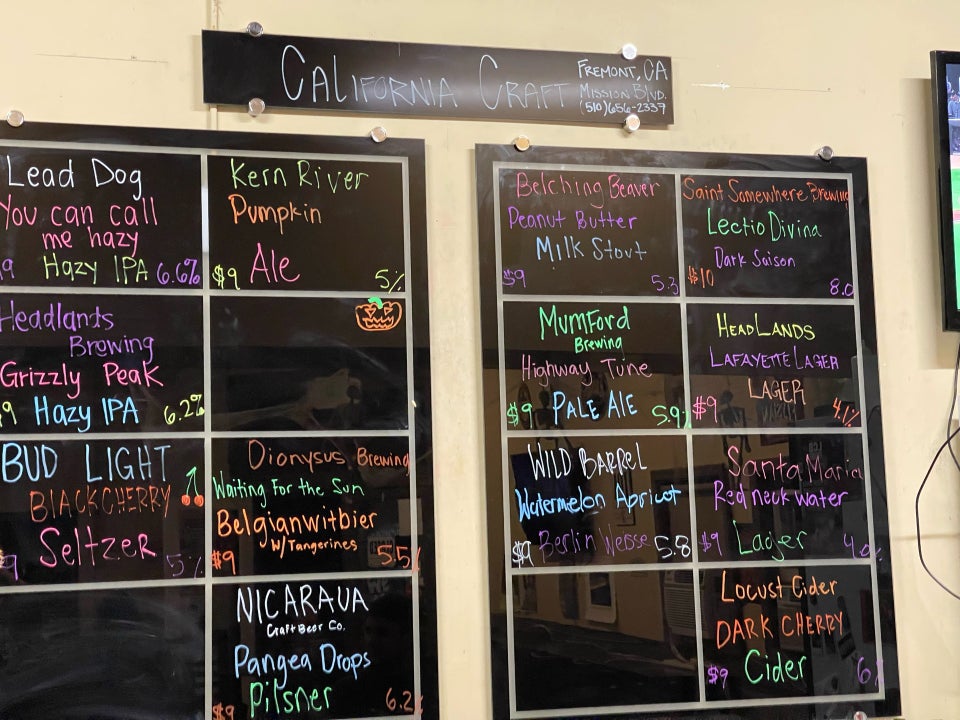 CALIFORNIA CRAFT
FREMONT, CA
MISSION BLVD.
(510)656-2337
Lead Dog
You can call
me hazy
9 Hazy IPA 6.6%
Kern River
Pumpkin
$9 Ale 5%
Headlands
Brewing
Grizzly Peak
9 Hazy IPA 6.2%
BUD LIGHT
BLACKCHERRY
9 Seltzer 5%
Dionysus Brewing
Waiting For the Sun
Belgianwitbier
W/Tangerines
$9 5.5%
NICARAUA
Craft Beer Co.
Pangea Drops
Pilsner
$9 6.2%
Belching Beaver
Peanut Butter
Milk Stout
$9 5.3
Saint Somewhere Brewing
Lectio Divina
Dark Saison
$10 8.0
MUMFord
Brewing
Highway Tune
$9 PALE ALE 5.9%
HEADLANDS
LAFAYETTE LAGER
LAGER
$9 4.1%
WILD BARREL
Watermelon Apricot
$9 Berlin Weisse 5.8
Santa Maria
Red neck water
$9 Lager 4.0%
Locust Cider
DARK CHERRY
$9 Cider 6%